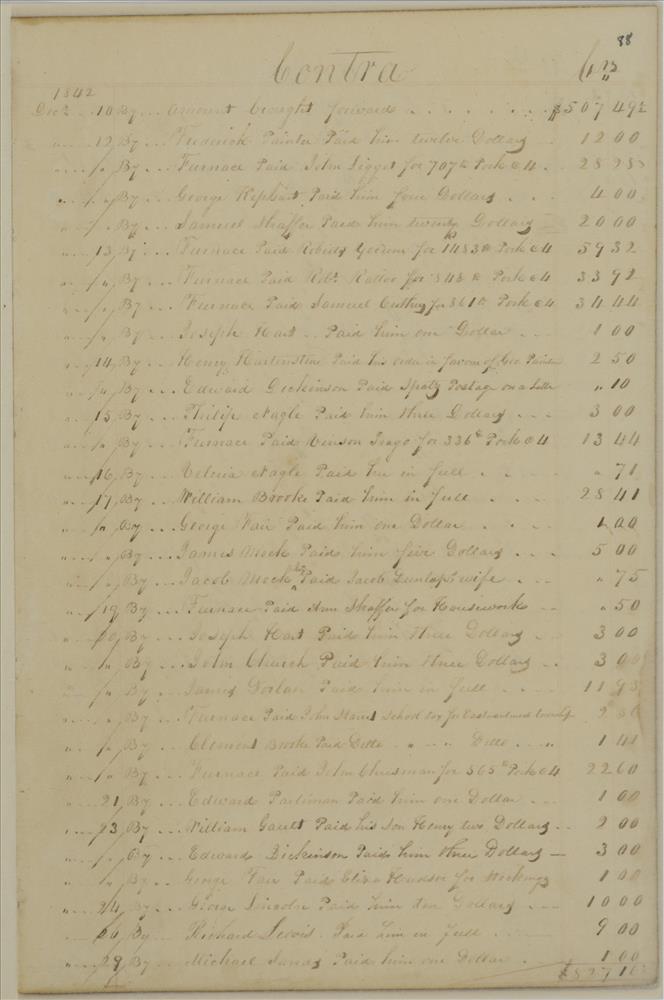 88
Contra Crs
1842
Decr 10 By Amount brought forward $507 49½
" 12 By Frederick Painter Paid him twelve Dollars 12 00
" " By Furnace Paid John Ligget for 707 lb Pork @ 4 28 28
" " By George Rephart Paid him four Dollars 4 00
" " By Samuel Shaffer Paid him twenty Dollars 20 00
" 13 By Furnace Paid Robert for 1483 lb Pork @ 4 59 32
" " By Furnace Paid Robt for 848 lb Pork @ 4 33 92
" " By Furnace Paid Samuel for 861 lb Pork @ 4 34 44
" " By Joseph Hart Paid him one Dollar 1 00
" 14 By Henry Hartenstine Paid his order in favour of Geo Painter 2 50
" " By Edward Dickinson Paid Postage on a letter " 10
" 15 By Philip Nagle Paid him three Dollars 3 00
" " By Furnace Paid for 336 lb Pork @ 4 13 44
" 16 By Nagle Paid her in full " 71
" 17 By William Brooke Paid him in full 28 41
" " By George Fair Paid him one Dollar 1 00
" " By James Mock Paid him five Dollars 5 00
" " By Jacob Mock Paid Jacob Dunlap's wife " 75
" 19 By Furnace Paid Ann Shaffer for Housework " 50
" 20 By Joseph Hart Paid him three Dollars 3 00
" " By John Church Paid him three Dollars 3 00
" " By James Paid him in full 11 93
" " By Furnace Paid John School tax for township 2
" " By Clement Brooke Paid Ditto " " Ditto " 1 41
" " By Furnace Paid John Chrisman for 565 lb Pork @ 4 22 60
" 21 By Edward Parliman Paid him one Dollar 1 00
" 23 By William Gault Paid his son Henry two Dollars 2 00
" " By Edward Dickinson Paid him three Dollars 3 00
" " By George Fair Paid Eliza Hudson for Stockings 1 00
" 24 By George Lincoln Paid him ten Dollars 10 00
" 26 By Richard Lewis Paid him in full 9 00
" 29 By Michael Paid him one Dollar 1 00